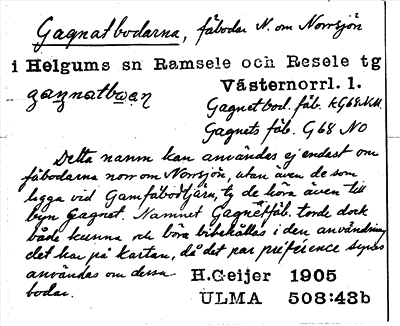 Gagnatbodarna, fäbodar N. om Norrsjön
i Helgums sn Ramsele och Resele tg
Västernorrl. l.
Gagnetbod. fäb.
Gagnets fäb. G68 NO
Detta namn kan användas ej endast om
fäbodarna norr om Norrsjön, utan även de som
ligga vid Gamfäbodtjärn, ty de höra även till
byn Gagnet. Namnet Gagnetfäb. torde dock
både kunna och böra bibehållas i den användning
det har på kartan, då det par préférence synes
användas om dessa
bodar.
H.Geijer 1905
ULMA 508:43b